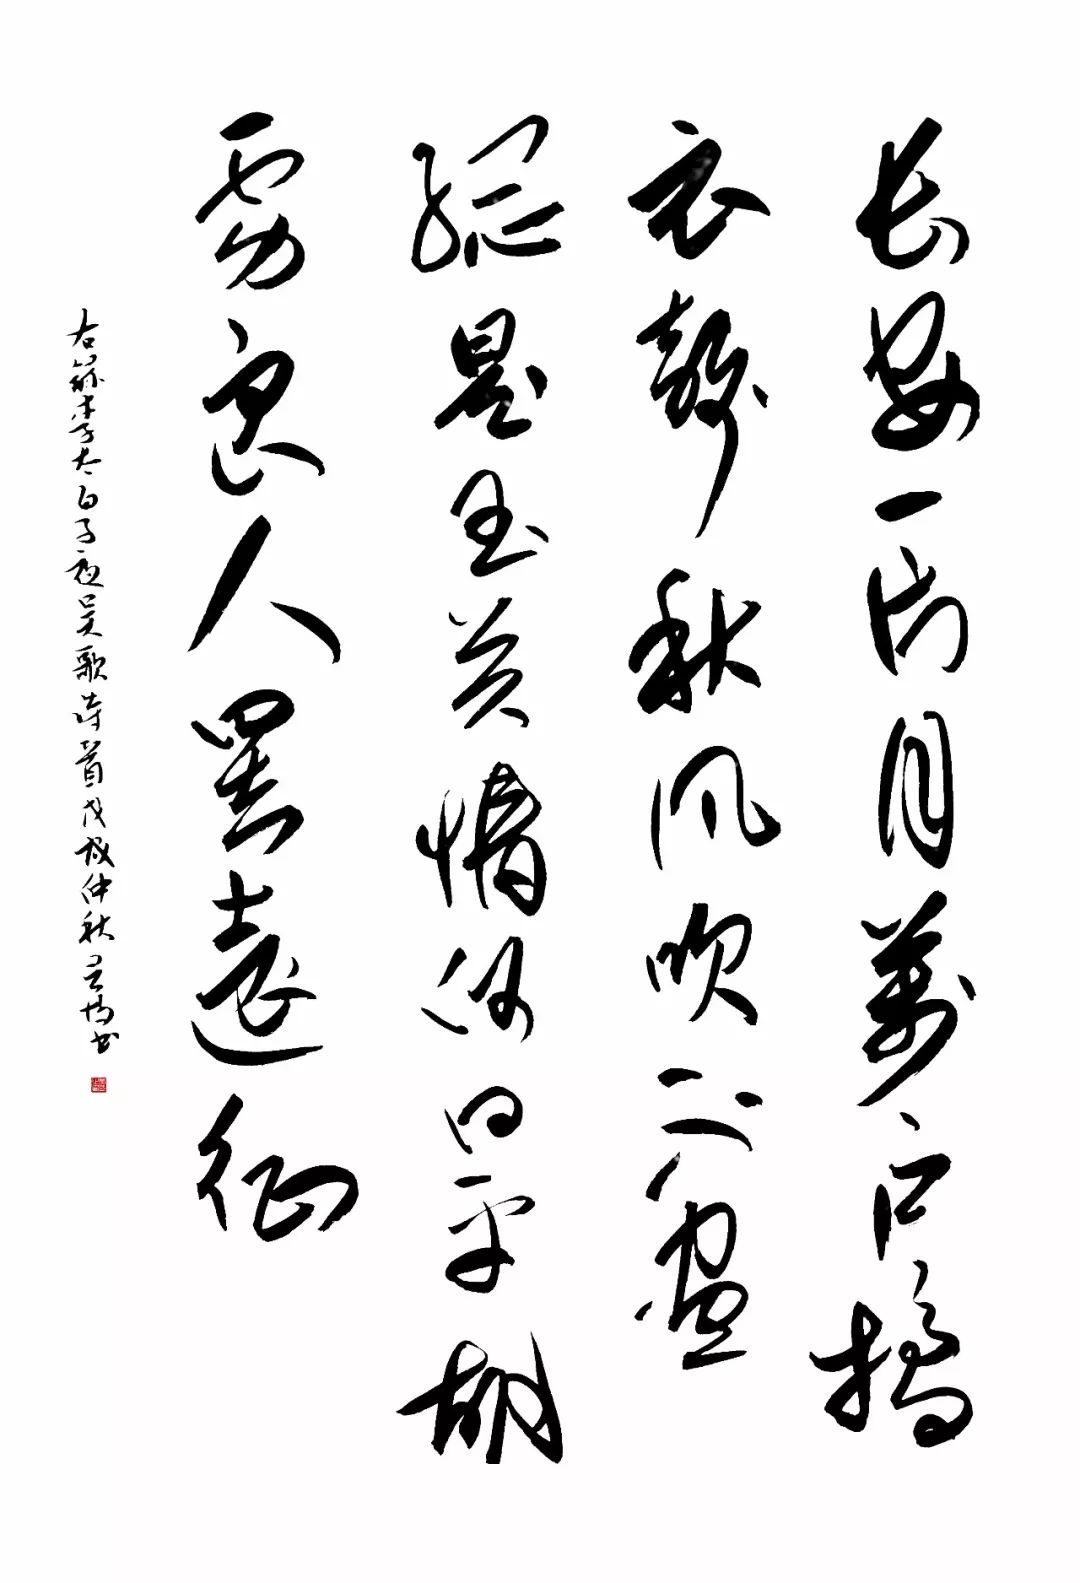 长安一片月萬户擣
衣聲秋风吹不盡
總是玉關情何日平胡
虜良人罷遠征
右錄李太白子夜吴歌诗首戊戌仲秋